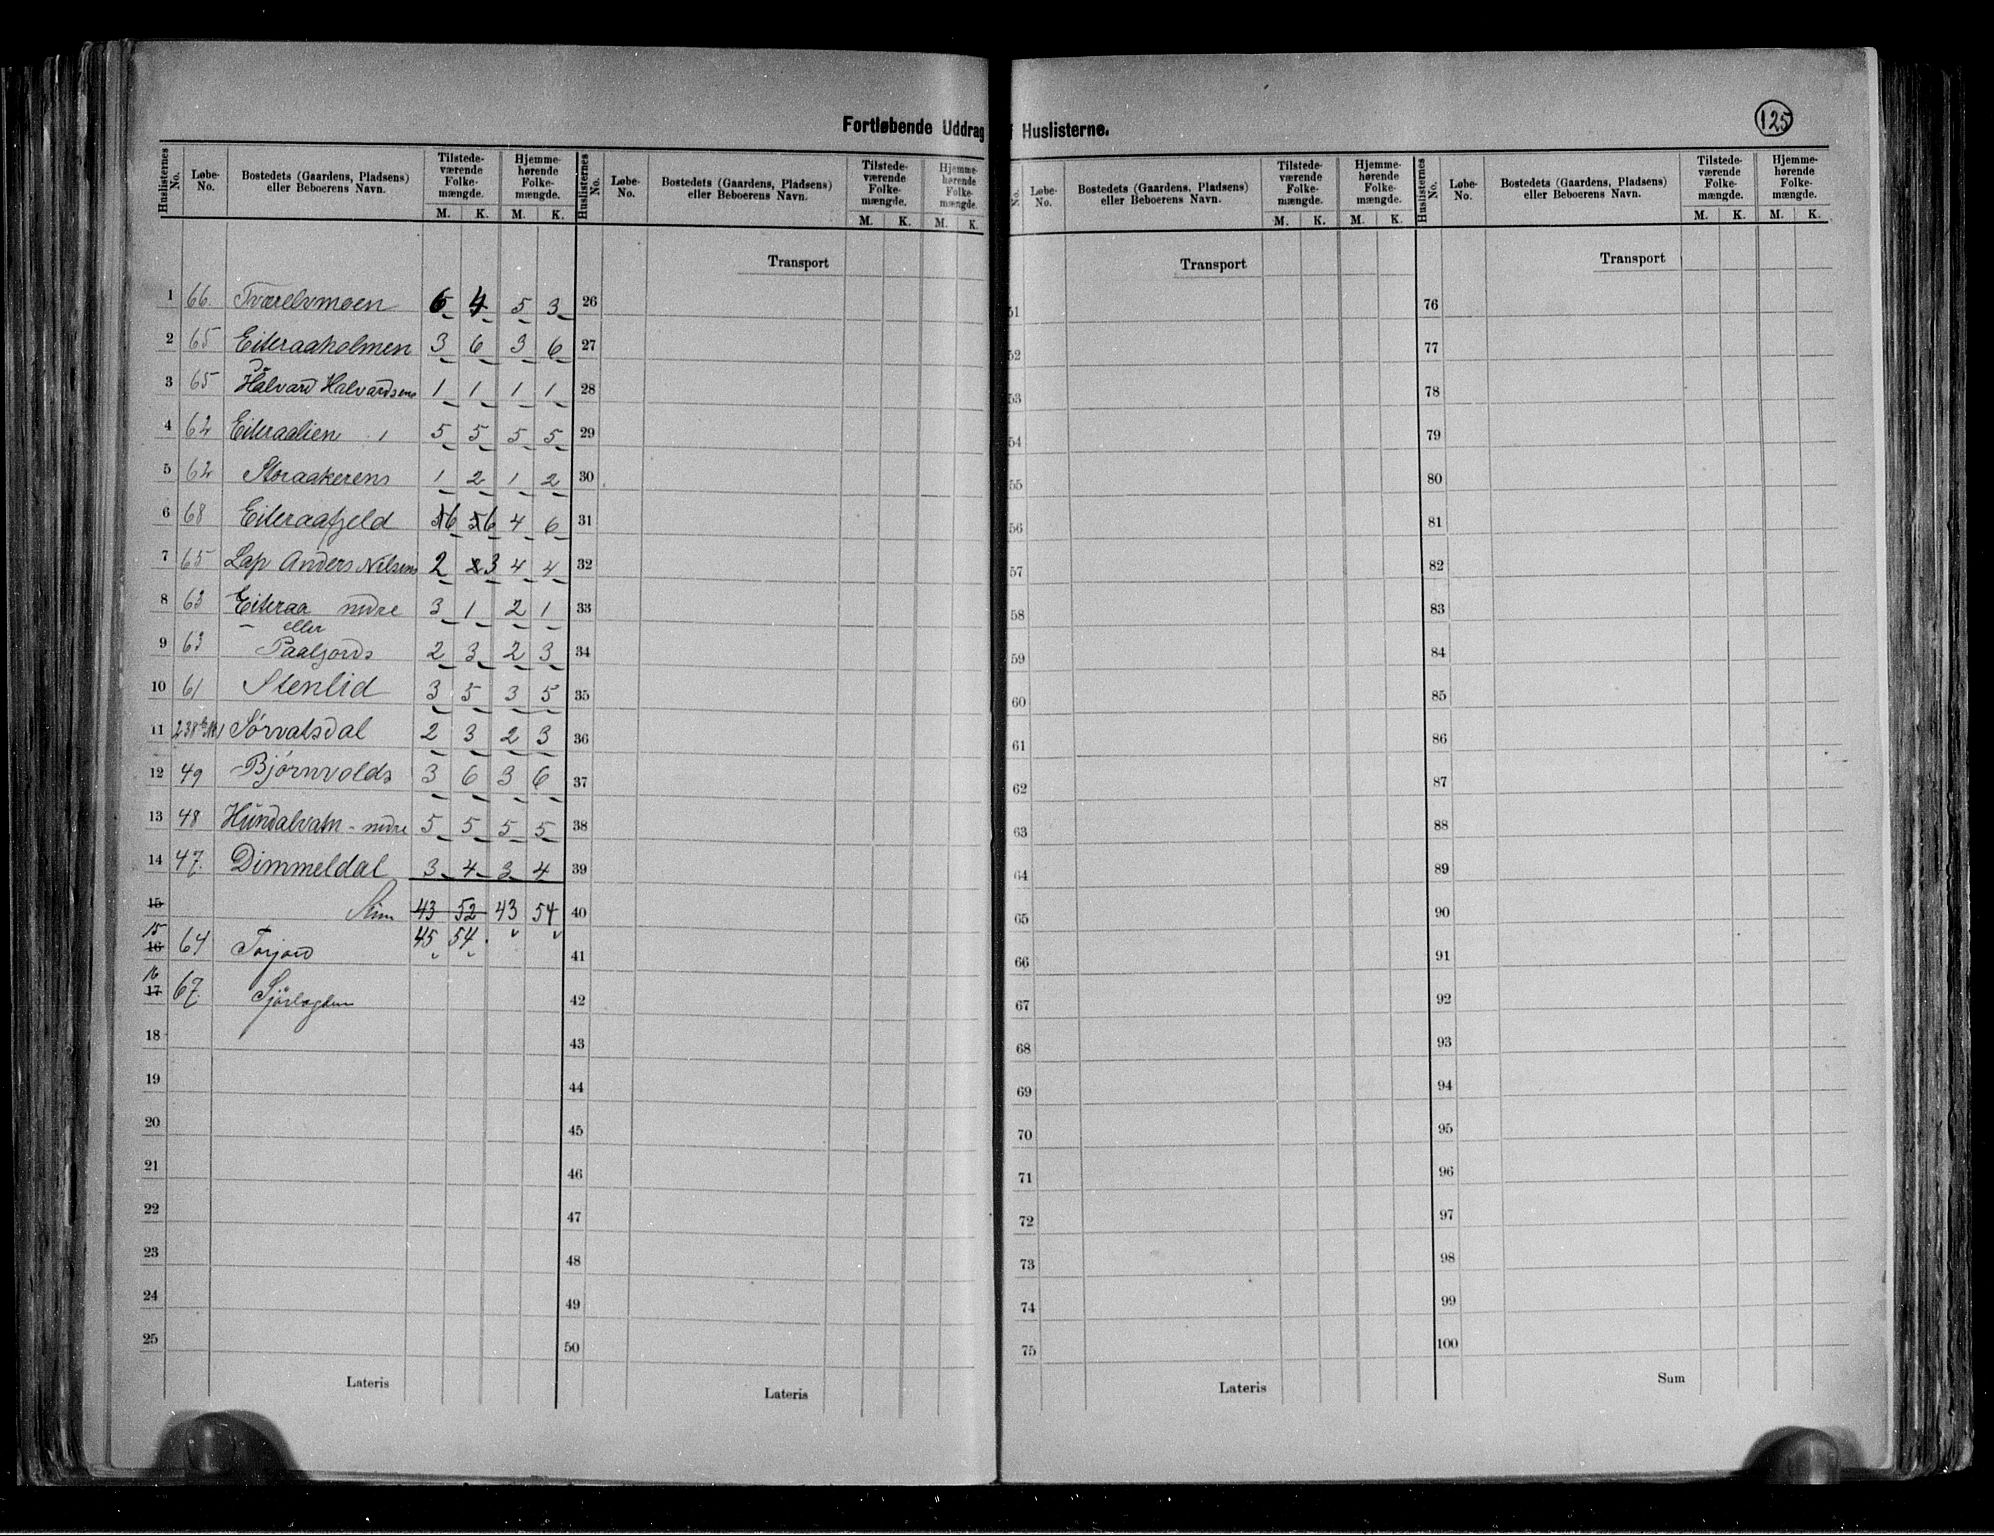 Fortløbende Uddrag f Huslisterne.
125
Huslisternes No. Løbe-No. Bostedets (Gaardens, Pladsens) eller Beboerens Navn. Tilstedeværende Folkemængde. M. K. Hjemmehørende Folkemængde. M. K.
1 66. Tværelvmoen 6 4 5 3
2 65 Eiteraaholmen 3 6 3 6
3 65 Halvard Halvardsens 1 1 1 1
4 62 Eiteraalien 5 5 5 5
5 62 Storaakerens 1 2 1 2
6 68 Eiteraafjeld 5 6 5 6 4 6
7 65 Lap Anders Nilsens 2 2 3 4 4
8 63 Eiteraa nedre 3 1 2 1
eller
9 63 Paaljords 2 3 2 3
10 61 Stenlid 3 5 3 5
11 238 Sørvatsdal 2 3 2 3
12 49 Bjørnvolds 3 6 3 6
13 48 Hundalvatn - nedre 5 5 5 5
14 47. Dimmeldal 3 4 3 4
15 Sum 43 52 43 54
15 16 64 Torjord 45 54
16 17 67.
18
19
20
21
22
23
24
25
Lateris
Huslisternes No. Løbe-No. Bostedets (Gaardens, Pladsens) eller Beboerens Navn. Tilstedeværende Folkemængde. M. K. Hjemmehørende Folkemængde. M. K.
Transport
26
27
28
29
30
31
32
33
34
35
36
37
38
39
40
41
42
43
44
45
46
47
48
49
50
Lateris
No. Løbe-No. Bostedets (Gaardens, Pladsens) eller Beboerens Navn. Tilstedeværende Folkemængde. M. K. Hjemmehørende Folkemængde. M. K.
Transport
51
52
53
54
55
56
57
58
59
60
61
62
63
64
65
66
67
68
69
70
71
72
73
74
75
Lateris
Huslisternes No. Løbe-No. Bostedets (Gaardens, Pladsens) eller Beboerens Navn. Tilstedeværende Folkemængde. M. K. Hjemmehørende Folkemængde. M. K.
Transport
76
77
78
79
80
81
82
83
84
85
86
87
88
89
90
91
92
93
94
95
96
97
98
99
100
Sum